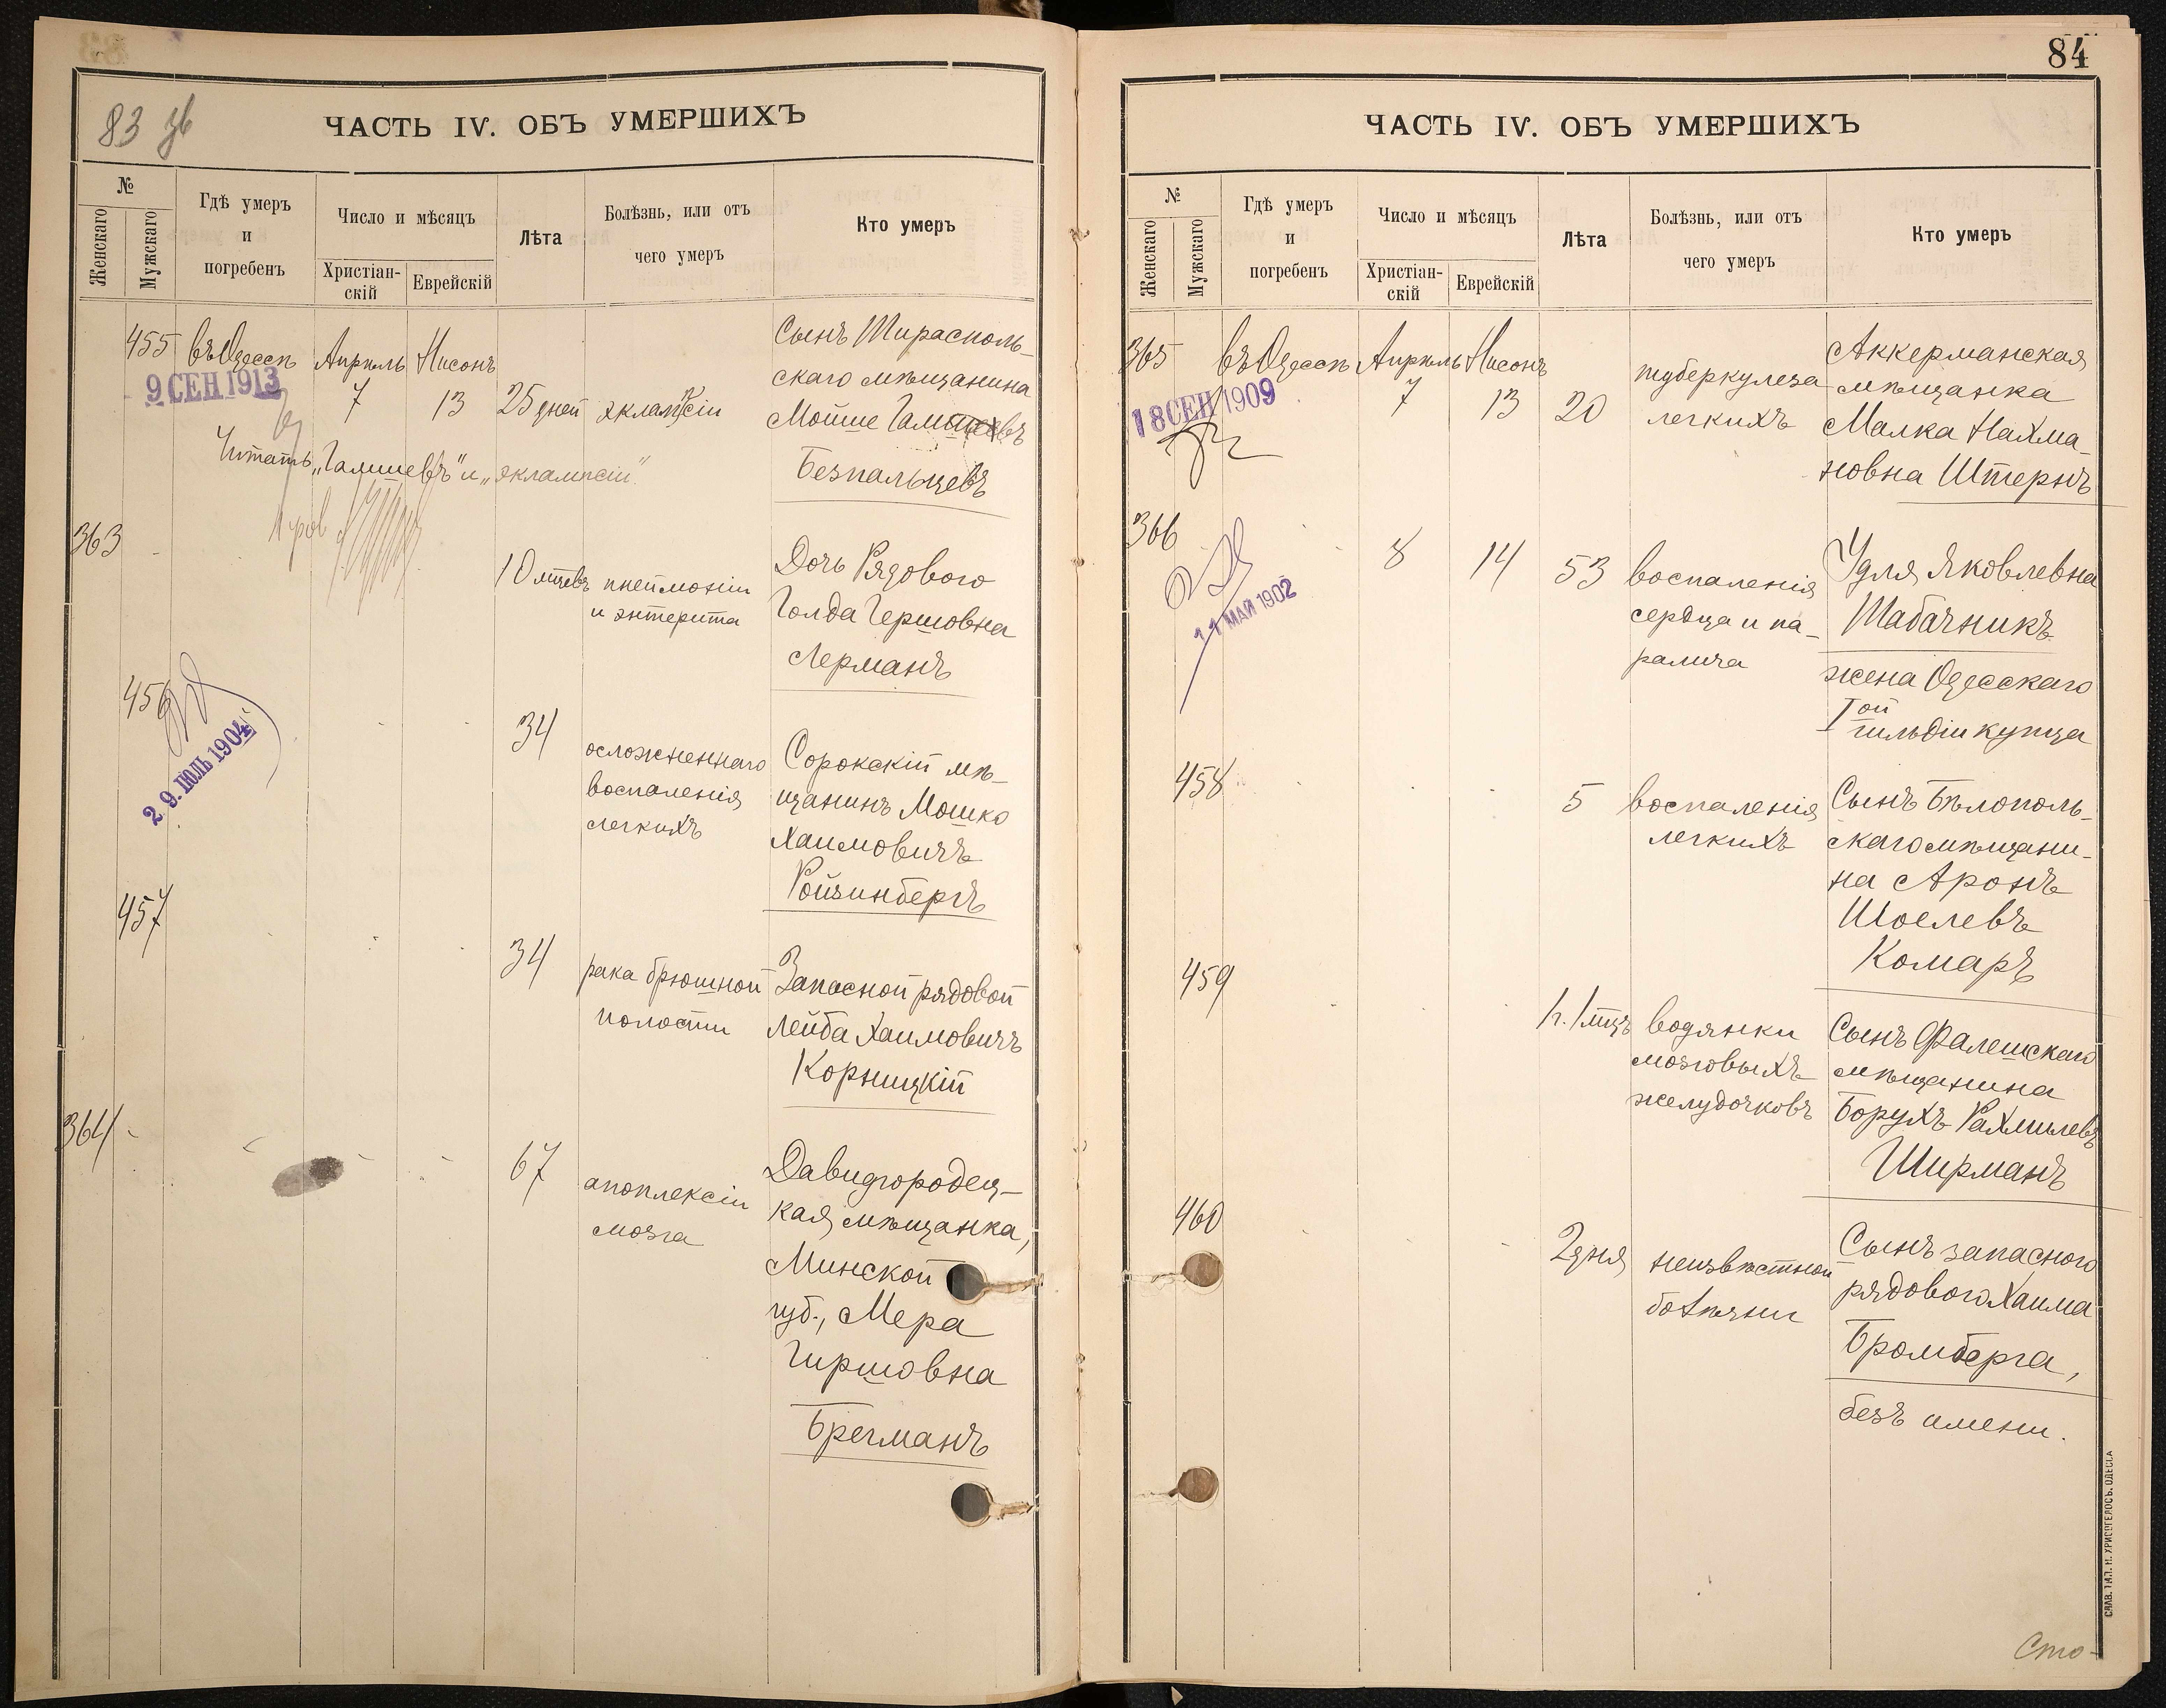 83 зв
ЧАСТЬ IV. ОБЪ УМЕРШИХЪ
№
Женскаго
Мужскаго
Гдѣ умеръ
и
погребенъ
Число и мѣсяцъ
Христіан-
скій
Еврейскій
Лѣта
Болѣзнь, или отъ
чего умеръ
Кто умеръ
455 въ Одессѣ Апрѣль Нисонъ
7 13 25 дней эклампсіи
Сынъ Тирасполь-
скаго мѣщанина
Мойше Галишевъ
Безпальцевъ
9 СЕН 1913
Читать „Галишевъ" и „эклампсіи".
363
10 мцевъ пнеймоніи
и энтерита
Дочь Рядового
Голда Гершовна
Лерманъ
456
29. ІЮЛЬ 1904
34
осложненнаго
воспаленія
легкихъ
Сорокскій мѣ-
щанинъ Мошко
Хаимовичъ
Ройзинбергъ
457
34
рака брюшной
полости
Запасной рядовой
Лейба Хаимовичъ
Корницкій
364
67
апоплексіи
мозга
Давидгородец-
кая мѣщанка,
Минской
губ., Мера
Гиршовна
Брегманъ
84
ЧАСТЬ IV. ОБЪ УМЕРШИХЪ
№
Женскаго
Мужскаго
Гдѣ умеръ
и
погребенъ
Число и мѣсяцъ
Христіан-
скій
Еврейскій
Лѣта
Болѣзнь, или отъ
чего умеръ
Кто умеръ
365 въ Одессѣ Апрѣль Нисонъ
7 13 20
туберкулеза
легкихъ
Аккерманская
мѣщанка
Малка Нахма-
новна Штернъ
18 СЕН 1909
366
8 14 53
воспаленія
сердца и па-
ралича
Удля Яковлевна
Шабачникъ
жена Одесскаго
Iой гильдіи купца
11 МАЙ 1902
458
5
воспаленія
легкихъ
Сынъ Бѣлополь-
скаго мѣщани-
на Аронъ
Шоелевъ
Комаръ
459
1г. 1мцъ
водянки
мозговыхъ
желудочковъ
Сынъ Фалешскаго
мѣщанина
Борухъ Рахмилевъ
Ширманъ
460
2 дня
неизвѣстной
болѣзни
Сынъ запасного
рядового Хаима
Бромберга,
безъ имени.
Сто-
СЛАВ. ТИП. Н. ХРИСОГЕЛОСЪ. ОДЕССА